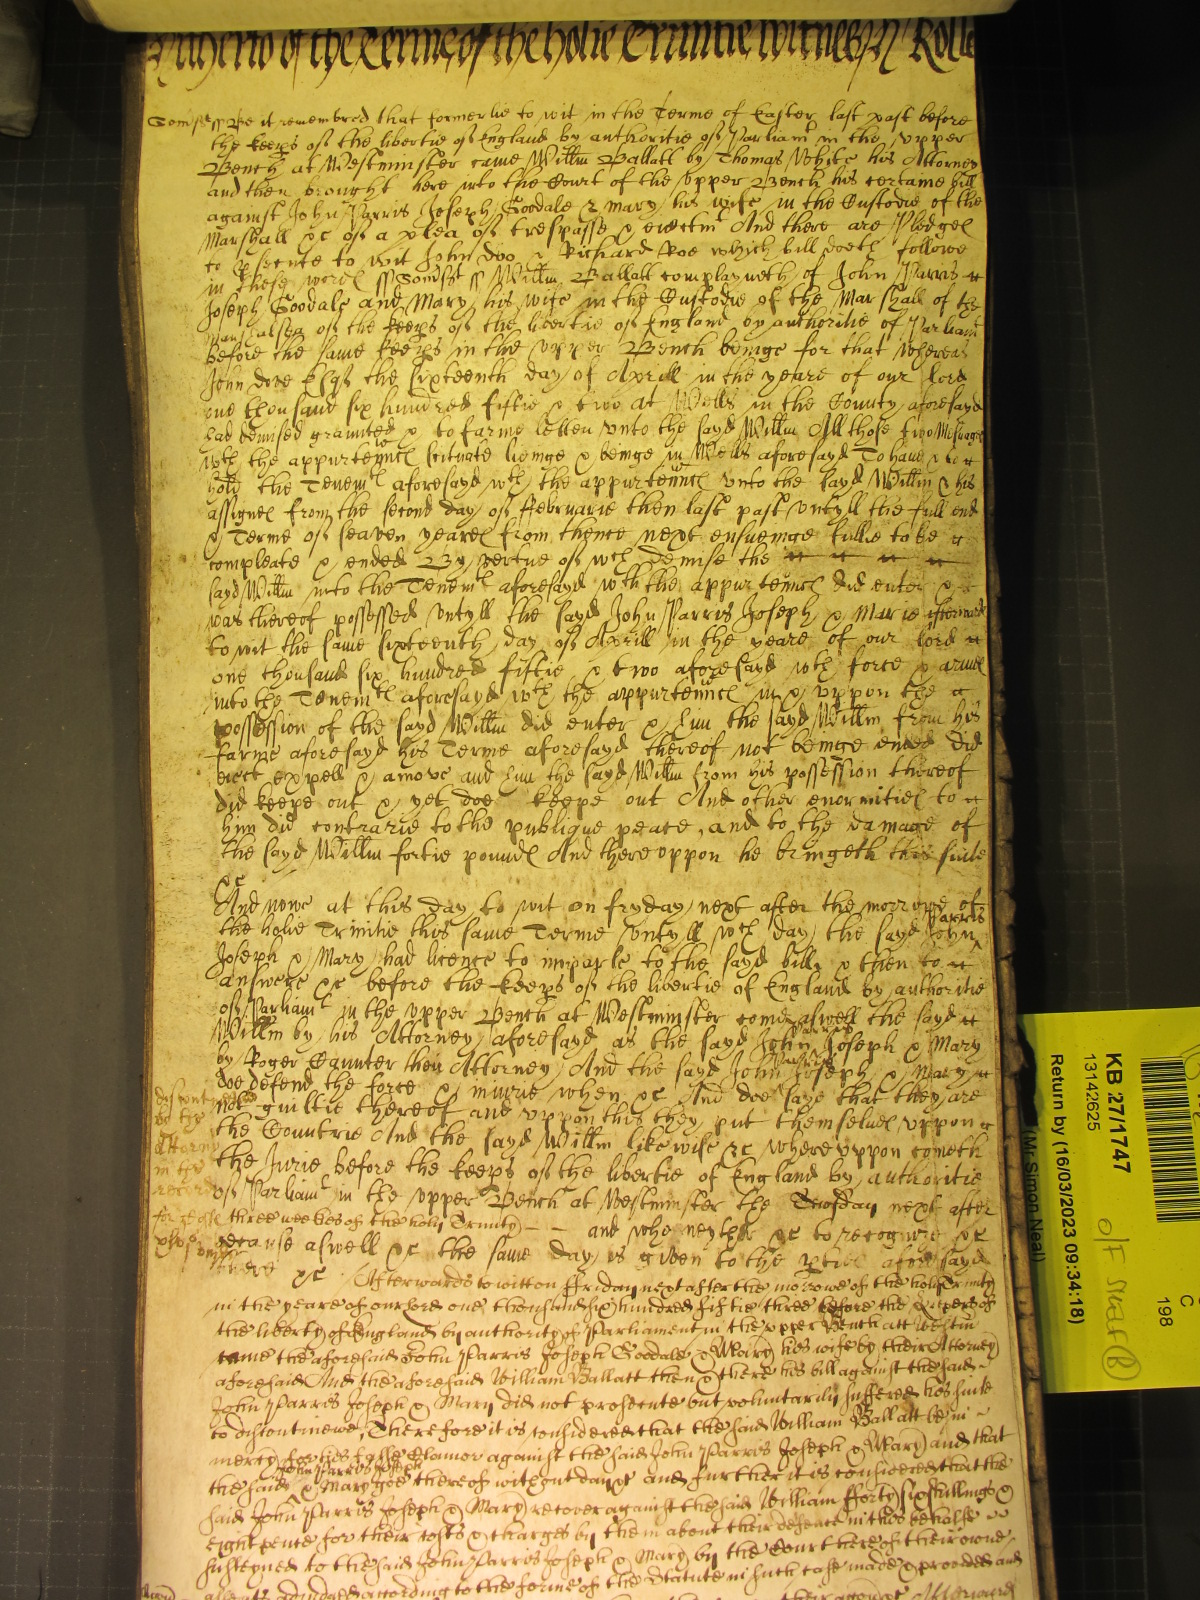 of the Terme of the holie Trinitie Witnes Rolle
Be it remembred that formerlie to wit in the Terme of Easter last past before
the Keeps of the libertie of England by authoritie of Parliamt in the Upper
Bench at Westminster came Willm Ballatt by Thomas White his Attorney
and then brought here into the Court of the Upper Bench his certaine bill
against John Parris Joseph Goodale & Mary his wife in the Custodie of the
Marshall &c of a plea of trespasse & eiectmt And there are Pledges
to psecute to wit John Doo & Richard Roe which bill doeth followe
in these words ss Somst ss Willm Ballatt complayneth of John Parris
Joseph Goodale and Mary his wife in the Custodie of the Marshall of the
Marshalsea of the Keeps of the libertie of England by authoritie of Parliamt
before the same Keeps in the Upper Bench beinge for that whereas
John Dove Esqr the sixteenth day of Aprill in the yeare of our lord
one thousand six hundred fiftie & two at Wells in the County aforesayd
had demised graunted & to farme letten unto the sayd Willm All those two Mesuages
wth the appurtennces scituate lieinge & beinge in Wells aforesayd To have & to
hold the Tenemts aforesayd wth the appurtennces unto the sayd Willm & his
assignes from the second day of Februarie then last past untyll the full end
& Terme of seaven yeares from thence next ensueinge fullie to be
compleate & ended By vertue of wch demise the
sayd Willm into the Tenemts aforesayd wth the appurtennces did enter &
was thereof possessed untyll the sayd John Parris Joseph & Marie afterwards
to wit the same sixteenth day of Aprill in the yeare of our lord
one thousand six hundred fiftie & two aforesayd wth force & armes
into the Tenemts aforesayd wth the appurtennces in & uppon the
possession of the sayd Willm did enter & him the sayd Willm from his
farme aforesayd his Terme aforesayd thereof not beinge ended did
eiect expell & amove and him the sayd Willm from his possession thereof
did keepe out & yet doe keepe out And other enormities to
him did contrarie to the publique peace, and to the damage of
the sayd Willm fortie pounds And thereuppon he bringeth this suite
&c
And nowe at this day to wit on fryday next after the morrowe of
the holie Trinitie this same Terme untyll wch day the sayd John Parris
Joseph & Mary had licence to imparle to the sayd bill & then to
answere &c before the Keeps of the libertie of England by authoritie
of Parliamt in the Upper Bench at Westminster come aswell the sayd
Willm by his Attorney aforesayd as the sayd John Parris Joseph & Mary
by Roger Gaunter their Attorney And the sayd John Parris Joseph & Mary
doe defend the force & iniurie when &c And doe saye that they are
not guiltie thereof and uppon this they put themselves uppon
the Countrie And the sayd Willm likewise &c whereuppon cometh
the Jurie before the Keeps of the libertie of England by authoritie
of Parliamt in the Upper Bench at Westminster the Tewsday next after
three weekes of the holy Trinity and who neyther &c to recognize &c
because aswell &c the same day is given to the pties aforesayd
there &c Afterwards to wit on Friday next after the morrowe of the holy Trinity
in the yeare of our lord one thousand six hundred fiftie three before the Keepers of
the liberty of England by authority of Parliament in the Upper Bench att Westm
came the aforesaid John Parris Joseph Goodale & Mary his wife by their Attorney
aforesaid And the aforesaid William Ballatt then & there his bill against the said
John Parris Joseph & Mary did not prosecute but voluntarily suffered his suite
to discontinewe, Therefore it is considered that the said William Ballatt be in
mercy for his false Clamor against the said John Parris Joseph & Mary and that
the said John Parris Joseph & Mary goe thereof without day &c and further it is considered that the
said John Parris Joseph & Mary recover against the said William fforty six shillings &
eight pence for their costs & charges by them about their defence in this behalfe
susteyned to the said John Parris Joseph & Mary by the Court here of their owne
assent adiudged according to the forme of the Statute in such case made & provided and
discontinued
by the
Attorny
in the
record
KB 27/1747
13142625
Return by (16/03/2023 09:34:18)
(Mr Simon Neal)
C
198